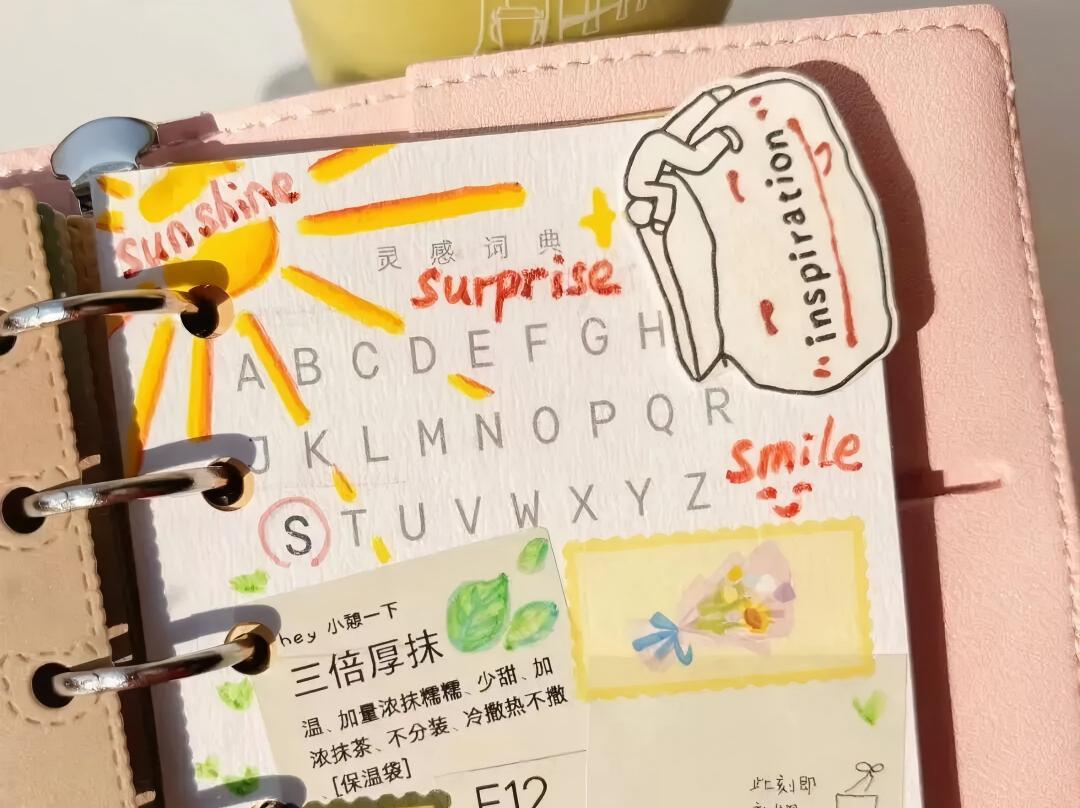 sunshine
灵感词典
surprise
"inspiration"
A B C D E F G H
J K L M N O P Q R
smile
S T U V W X Y Z
hey 小憩一下
三倍厚抹
温、加量浓抹糯糯、少甜、加
浓抹茶、不分装、冷撒热不撒
[保温袋]
E12
此刻即